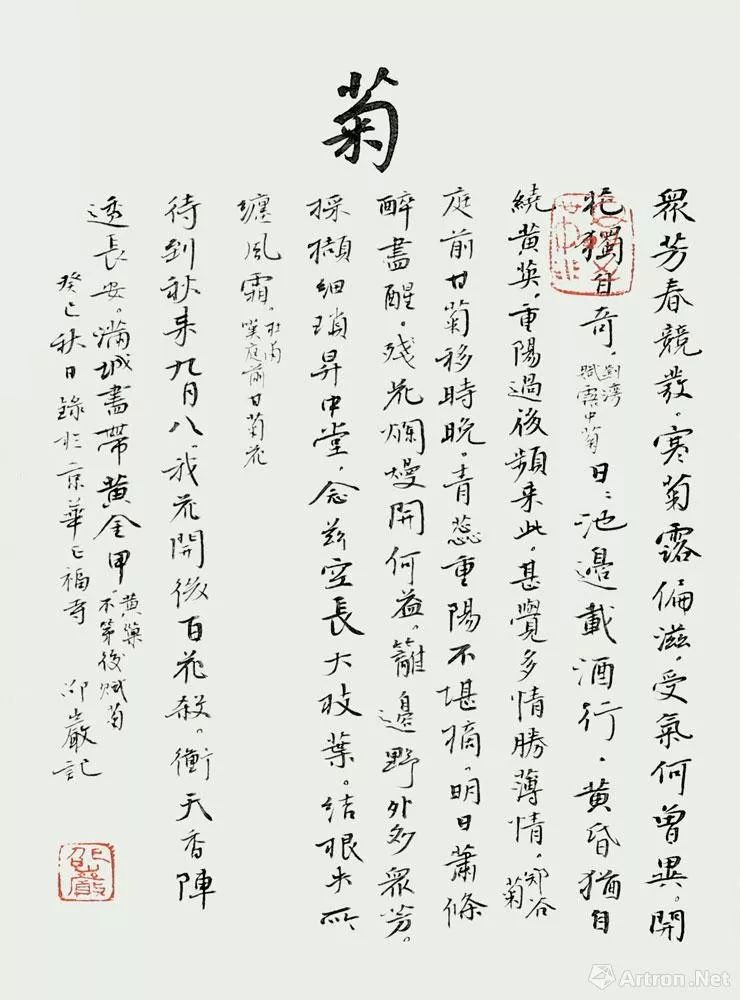 菊
眾芳春競發。寒菊露偏滋。受氣何曾異。開
花獨自奇。劉灣賦露中菊日〻池邊載酒行。黃昏猶自
繞黃英。重陽過後頻來此。甚覺多情勝薄情。鄭谷菊
庭前甘菊移時晚。青蕊重陽不堪摘。明日蕭條
醉盡醒。殘花爛熳開何益。籬邊野外多眾芳。
採擷細瑣昇中堂。念茲空長大枝葉。結根失所
纏風霜。杜甫嘆庭前甘菊花
待到秋來九月八。我花開後百花殺。衝天香陣
透長安。滿城盡帶黃金甲。黃巢不第後賦菊
癸巳秋日錄於京華正福寺 邵巖記
邵巖
Artron.Net